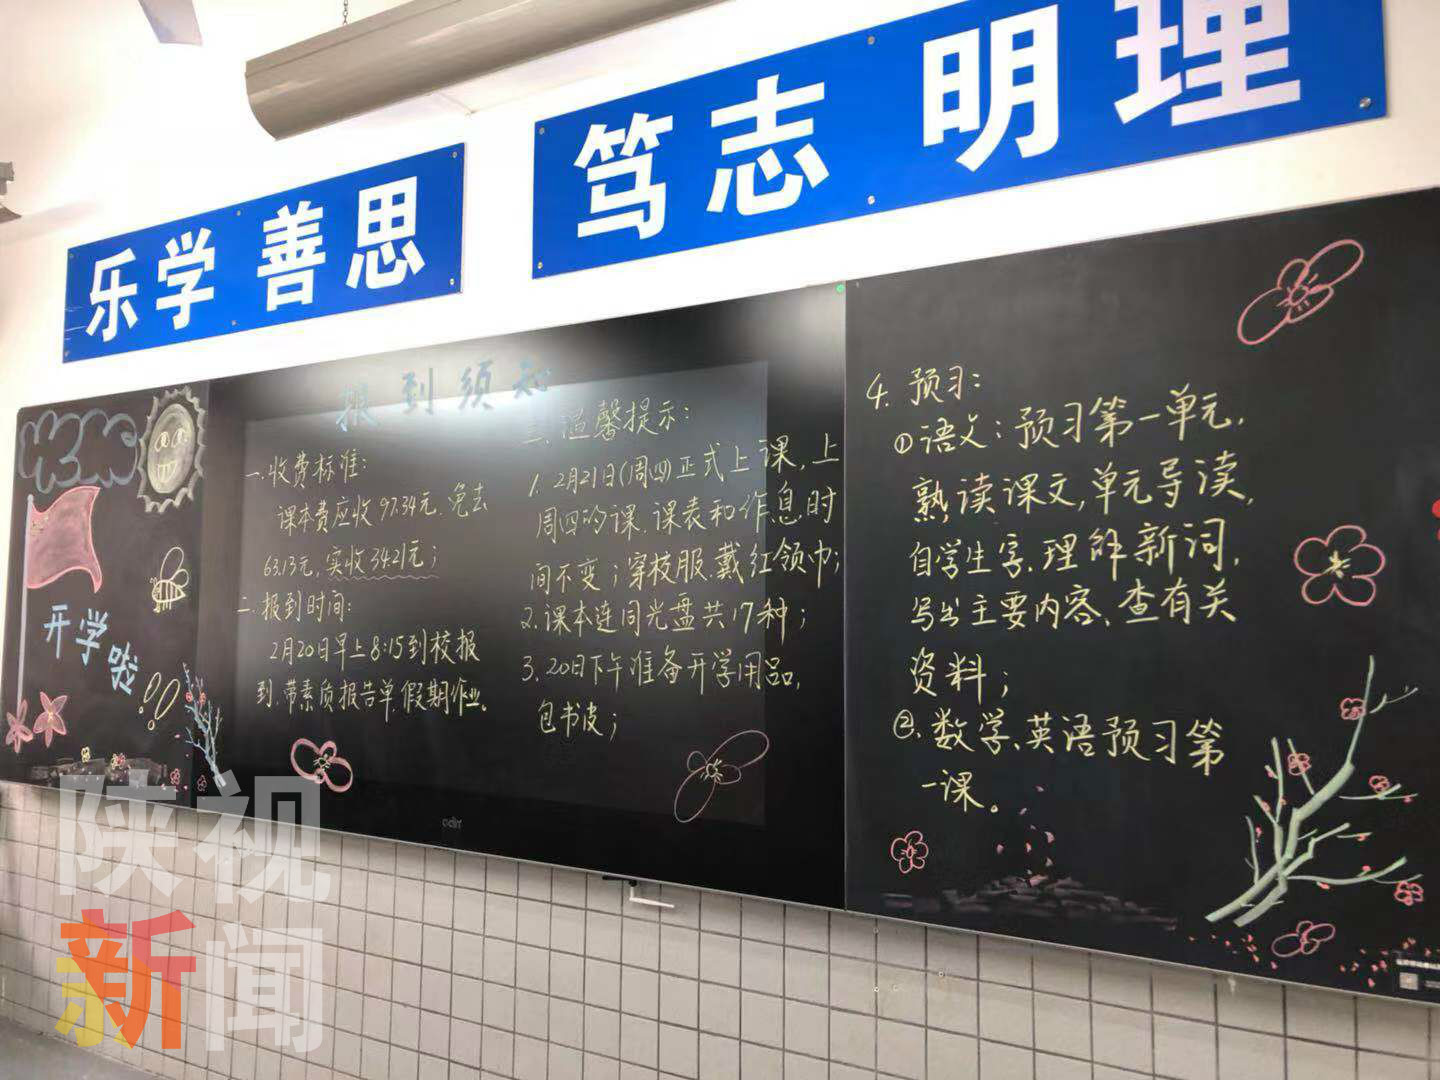 乐学 善思
笃志 明理
开学啦!!
报到须知
一.收费标准:
课本费应收97.34元.免去
63.13元,实收34.21元;
二.报到时间:
2月20日早上8:15到校报
到.带素质报告单.假期作业。
三.温馨提示:
1. 2月21日(周四)正式上课,上
周四的课.课表和作息时
间不变;穿校服.戴红领巾;
2.课本连同光盘共17种;
3.20日下午准备开学用品,
包书皮;
4.预习:
①语文:预习第一单元,
熟读课文,单元导读,
自学生字.理解新词,
写出主要内容、查有关
资料;
②.数学、英语预习第
一课。
陕视
新闻